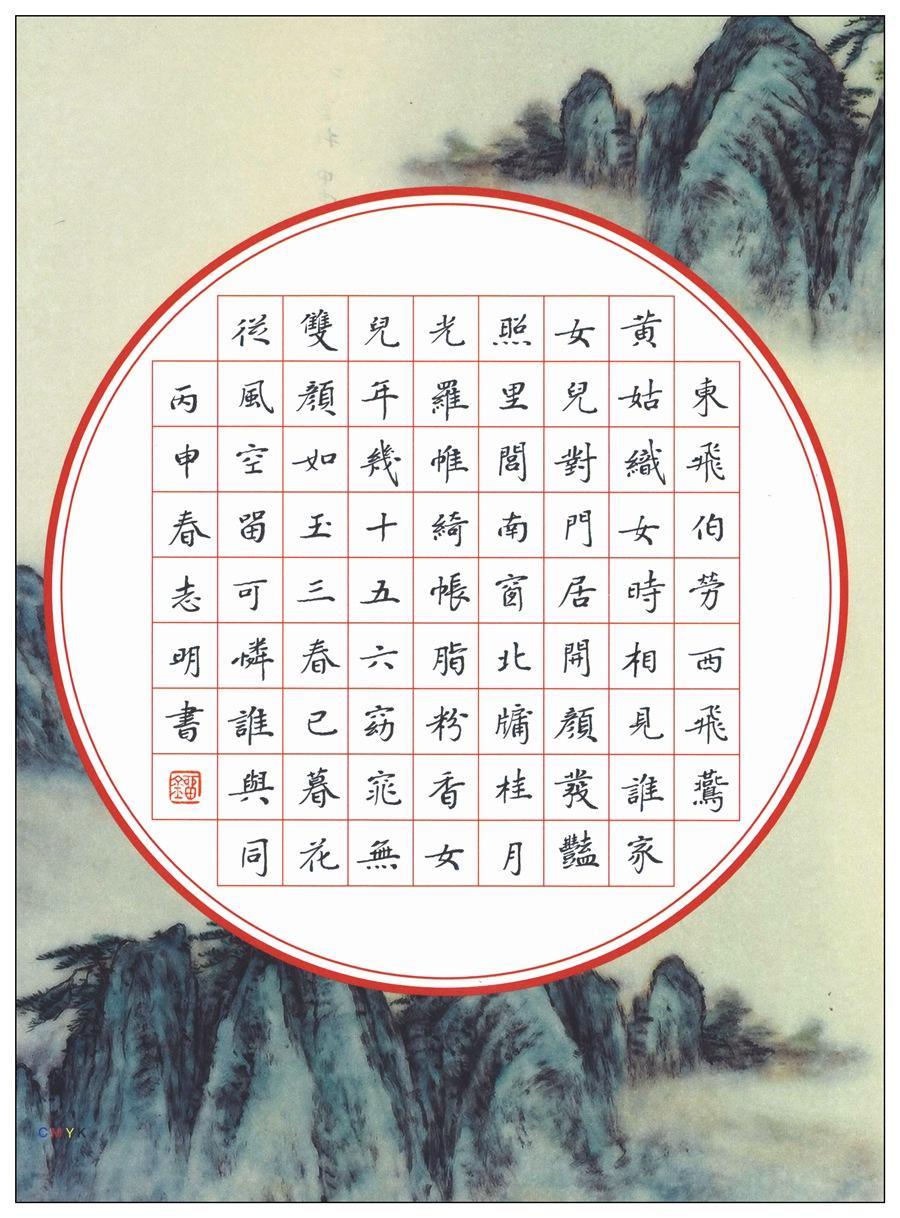 東飛伯勞西飛鷰
黃姑織女時相見誰家
女兒對門居開顏發豔
照里閭南窗北牗桂月
光羅帷綺帳脂粉香女
兒年幾十五六窈窕無
雙顏如玉三春已暮花
從風空留可憐誰與同
丙申春志明書
CMYK